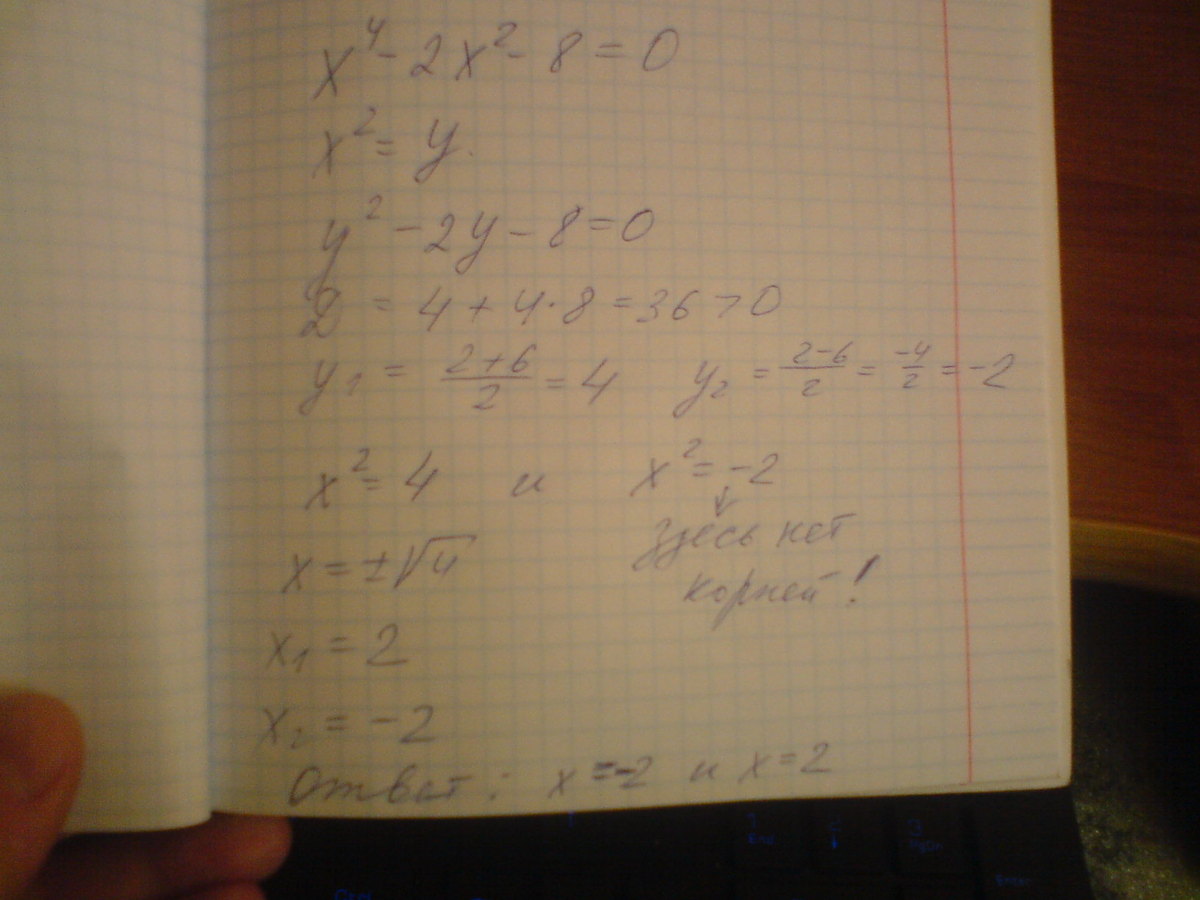 x⁴ - 2x² - 8 = 0
x² = y.
y² - 2y - 8 = 0
D = 4 + 4·8 = 36 > 0
y₁ = (2+6)/2 = 4 y₂ = (2-6)/2 = -4/2 = -2
x² = 4 и x² = -2
↓
Здесь нет
корней!
x = ±√4
x₁ = 2
x₂ = -2
Ответ: x = -2 и x = 2